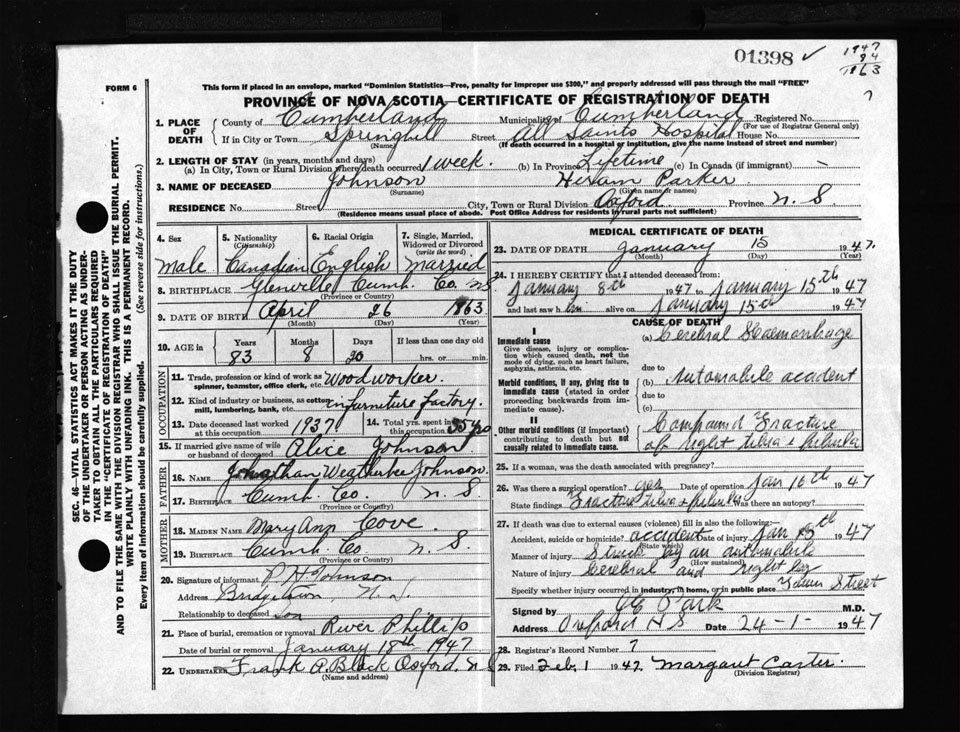 01398 ✓
1947
84
1863
7
FORM 6
This form if placed in an envelope, marked "Dominion Statistics—Free, penalty for improper use $300," and properly addressed will pass through the mail "FREE"
PROVINCE OF NOVA SCOTIA—CERTIFICATE OF REGISTRATION OF DEATH
1. PLACE OF DEATH County of Cumberland Municipality of Cumberland Registered No.
(For use of Registrar General only)
If in City or Town Springhill Street All Saints Hospital House No.
(Name) (If death occurred in a hospital or institution, give the name instead of street and number)
2. LENGTH OF STAY (in years, months and days)
(a) In City, Town or Rural Division where death occurred 1 week. (b) In Province Lifetime (c) In Canada (if immigrant) -
3. NAME OF DECEASED Johnson Hiram Parker
(Surname) (Given name or names)
RESIDENCE No. Street City, Town or Rural Division Oxford Province N.S.
(Residence means usual place of abode. Post Office Address for residents in rural parts not sufficient)
4. Sex 5. Nationality (Citizenship) 6. Racial Origin 7. Single, Married, Widowed or Divorced (write the word)
Male Canadian English Married
8. BIRTHPLACE Glenville Cumb. Co. N.S.
(Province or Country)
9. DATE OF BIRTH April 26 1863
(Month) (Day) (Year)
10. AGE in Years Months Days If less than one day old
83 8 20 hrs. or min.
OCCUPATION
11. Trade, profession or kind of work as spinner, teamster, office clerk, etc. Woodworker.
12. Kind of industry or business, as cotton mill, lumbering, bank, etc. in furniture factory.
13. Date deceased last worked at this occupation 1937 14. Total yrs. spent in this occupation
15. If married give name of wife or husband of deceased Alice Johnson
FATHER
16. NAME Johnson.
17. BIRTHPLACE Cumb. Co. N.S.
(Province or Country)
MOTHER
18. MAIDEN NAME Mary Ann Cove
19. BIRTHPLACE Cumb. Co. N.S.
(Province or Country)
20. Signature of informant P. H. Johnson
Address N.S.
Relationship to deceased Son
21. Place of burial, cremation or removal River Phillip
Date of burial or removal January 18th 1947
22. UNDERTAKER Frank P. Black Oxford. N.S.
(Name and address)
MEDICAL CERTIFICATE OF DEATH
23. DATE OF DEATH January 15 1947.
(Month) (Day) (Year)
24. I HEREBY CERTIFY that I attended deceased from:
January 8th 1947 to January 15th 1947
and last saw him alive on January 15th 1947
CAUSE OF DEATH
I
Immediate cause (a) Cerebral Haemorrhage
Give disease, injury or complication which caused death, not the mode of dying, such as heart failure, asphyxia, asthenia, etc.
due to
Morbid conditions, if any, giving rise to immediate cause (stated in order proceeding backwards from immediate cause).
(b) Automobile accident
due to
(c)
II
Other morbid conditions (if important) contributing to death but not causally related to immediate cause.
Compound Fracture
of right tibia & fibula
25. If a woman, was the death associated with pregnancy?
26. Was there a surgical operation? yes Date of operation Jan 10th 1947
State findings Fracture tibia & fibula Was there an autopsy?
27. If death was due to external causes (violence) fill in also the following:—
Accident, suicide or homicide? accident Date of injury Jan 1947
(State which)
Manner of injury Struck by an automobile
(How sustained)
Nature of injury Cerebral and right leg
Specify whether injury occurred in industry, in home, or in public place Street
Signed by M.D.
Address Oxford N S Date 24-1- 1947
28. Registrar's Record Number 7
29. Filed Feb 1 1947. Margaret Carter.
(Division Registrar)
SEC. 46—VITAL STATISTICS ACT MAKES IT THE DUTY OF THE UNDERTAKER OR PERSON ACTING AS UNDERTAKER TO OBTAIN ALL THE PARTICULARS REQUIRED IN THE "CERTIFICATE OF REGISTRATION OF DEATH" AND TO FILE THE SAME WITH THE DIVISION REGISTRAR WHO SHALL ISSUE THE BURIAL PERMIT.
WRITE PLAINLY WITH UNFADING INK. THIS IS A PERMANENT RECORD.
Every item of information should be carefully supplied. (See reverse side for instructions.)